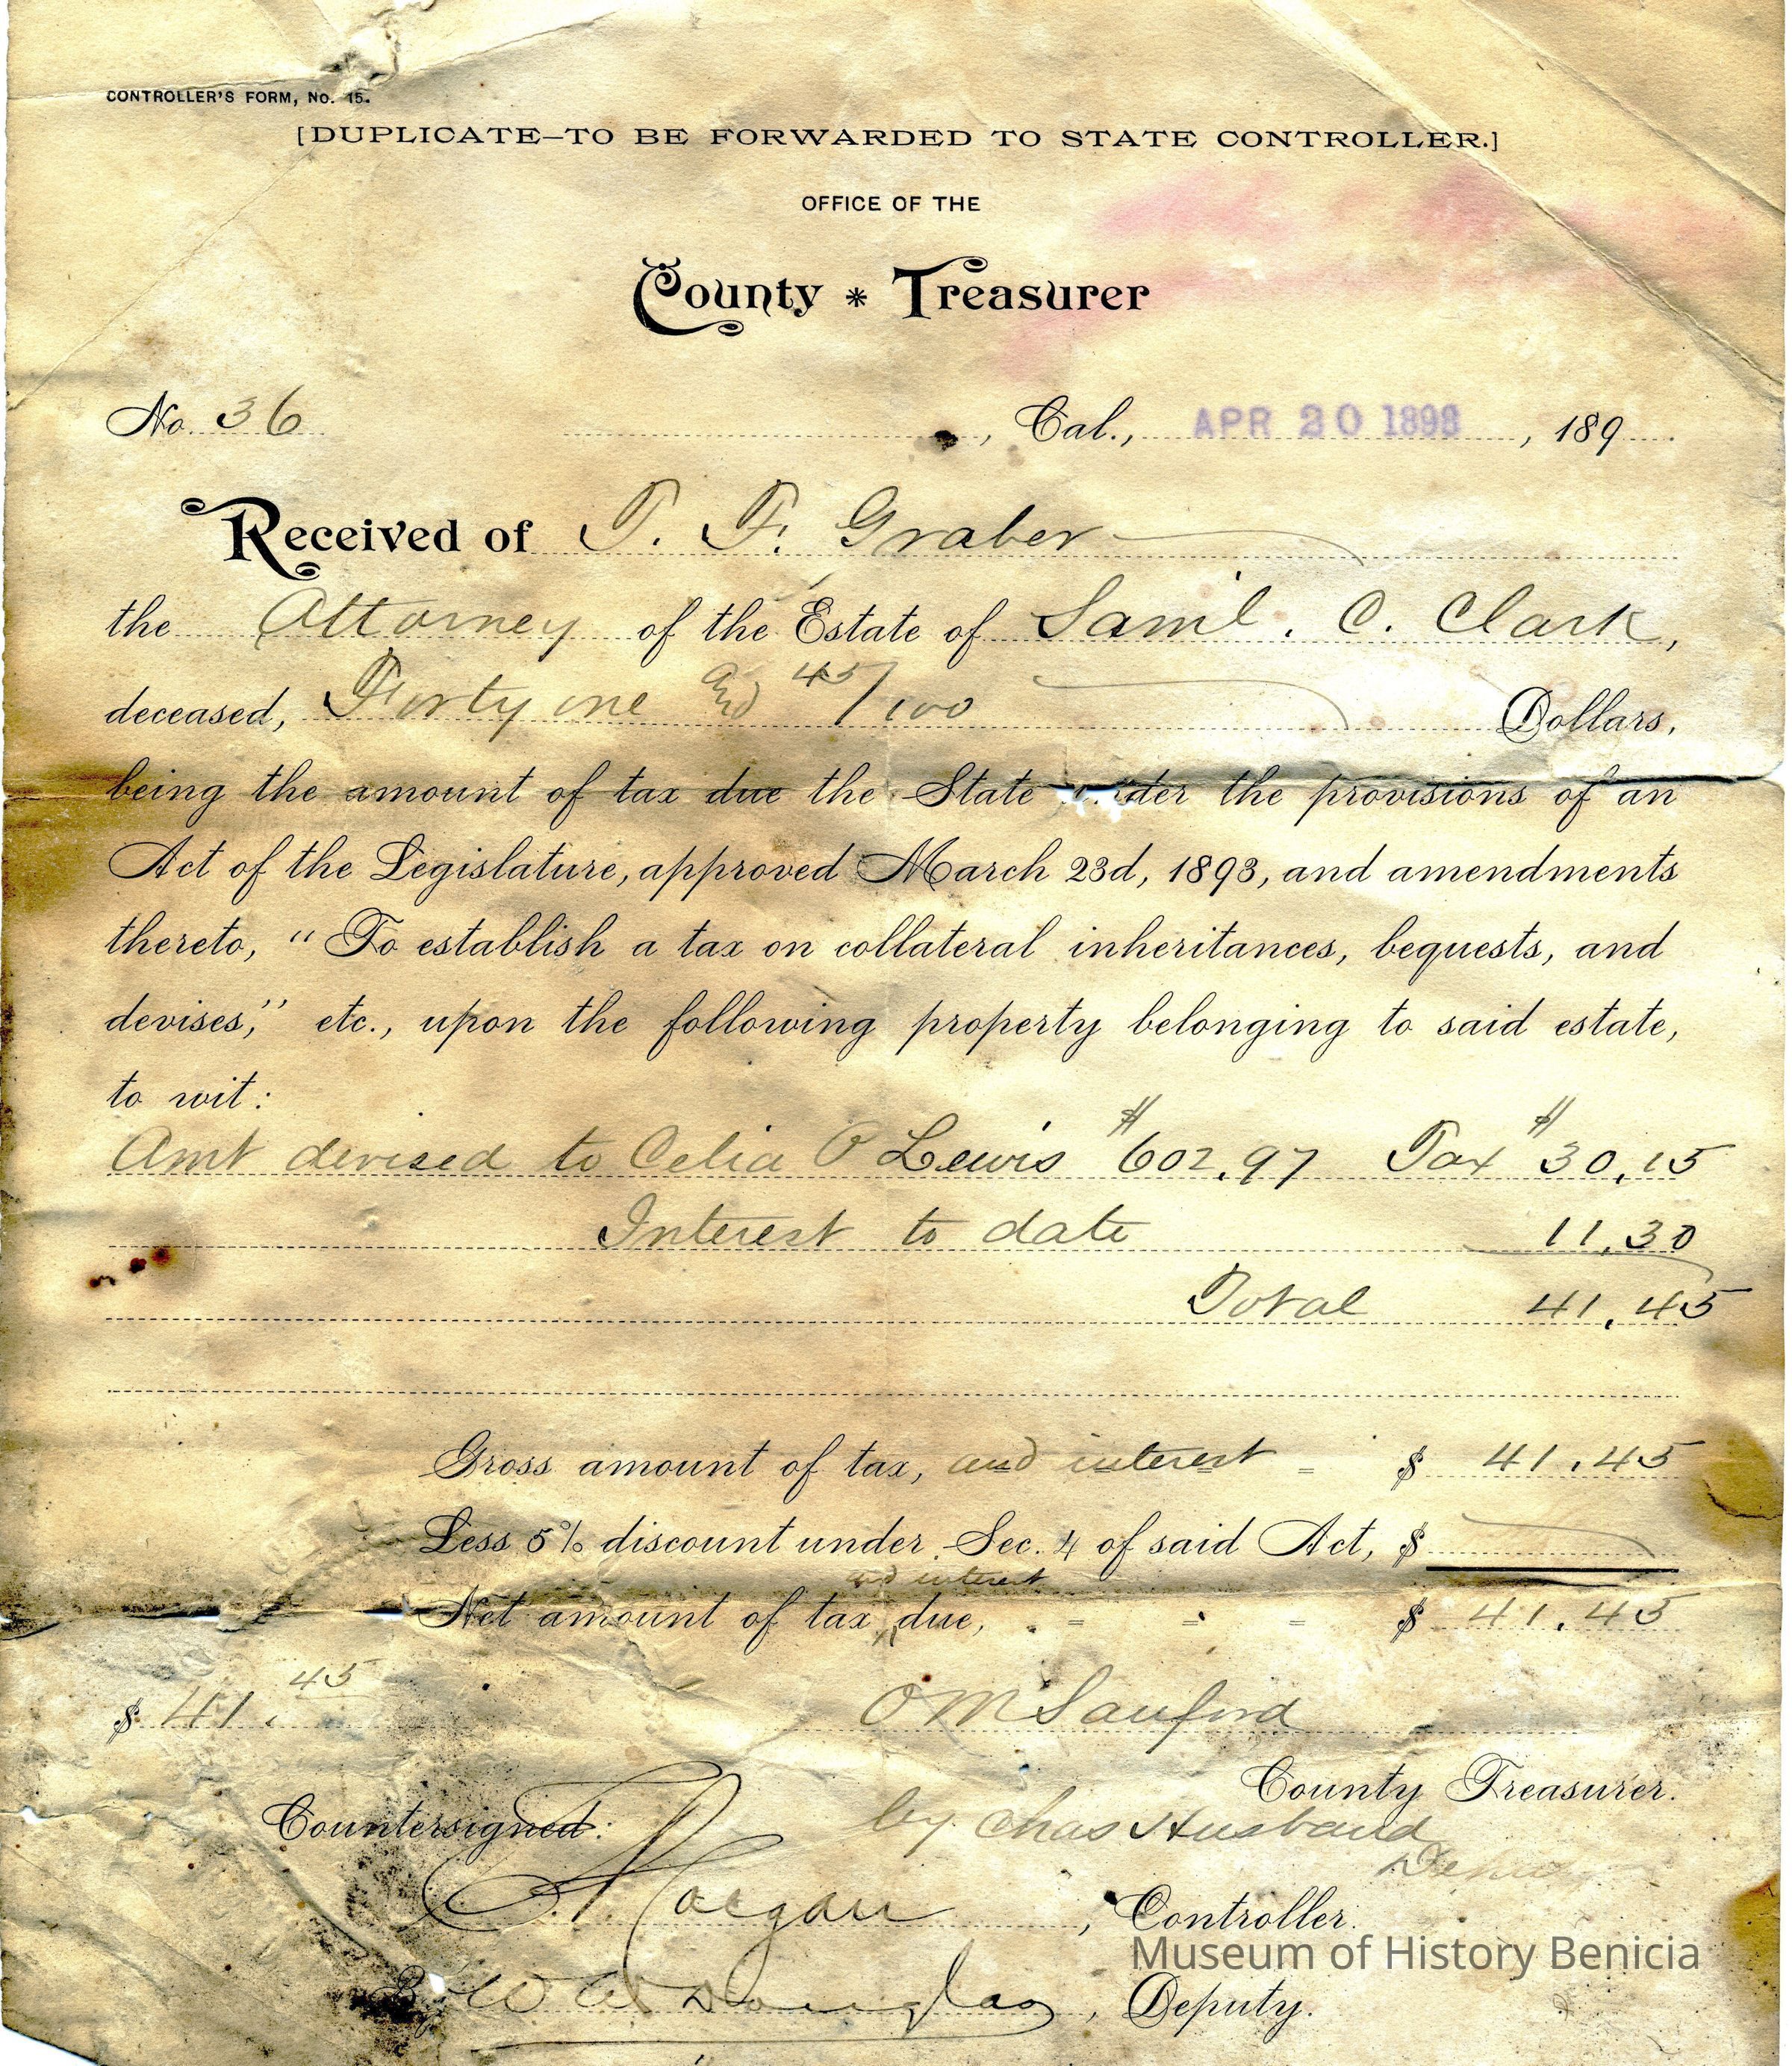 CONTROLLER'S FORM, No. 15.
[DUPLICATE—TO BE FORWARDED TO STATE CONTROLLER.]
OFFICE OF THE
County * Treasurer
No. 36 , Cal., APR 20 1898 , 189
Received of T. F. Graber
the Attorney of the Estate of Saml. C. Clark,
deceased, Forty one and 45/100 Dollars,
being the amount of tax due the State under the provisions of an
Act of the Legislature, approved March 23d, 1893, and amendments
thereto, "To establish a tax on collateral inheritances, bequests, and
devises," etc., upon the following property belonging to said estate,
to wit:
Amt devised to Celia P Lewis $602.97 Tax $30.15
Interest to date 11.30
Total 41.45
Gross amount of tax, and interest - $ 41.45
Less 5% discount under Sec. 4 of said Act, $
and interest
Net amount of tax due, - - - $ 41.45
$ 41.45
O M Sanford
County Treasurer.
Countersigned:
by Chas Husband
Colgan , Controller.
Museum of History Benicia
By W W Douglas , Deputy.